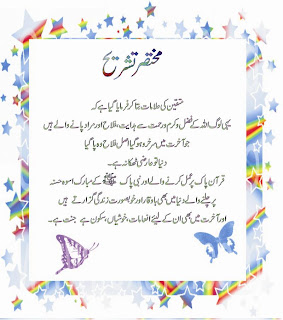 مختصر تشریح
متقین کی علامات بتا کر فرمایا گیا ہے کہ
یہی لوگ اللہ کے فضل و کرم و رحمت سے ہدایت، فلاح اور مراد پانے والے ہیں
جو آخرت میں سرخرو ہو گیا اصل فلاح وہ پا گیا
دنیا تو عارضی ٹھکانہ ہے۔
قرآن پاک پر عمل کرنے والے اور نبی پاک ﷺ کے مبارک اسوہ حسنہ
پر چلنے والے دنیا میں بھی باوقار اور خوبصورت زندگی گزارتے ہیں
اور آخرت میں بھی ان کے لیئے انعامات، خوشیاں، سکون ہے جنت ہے۔